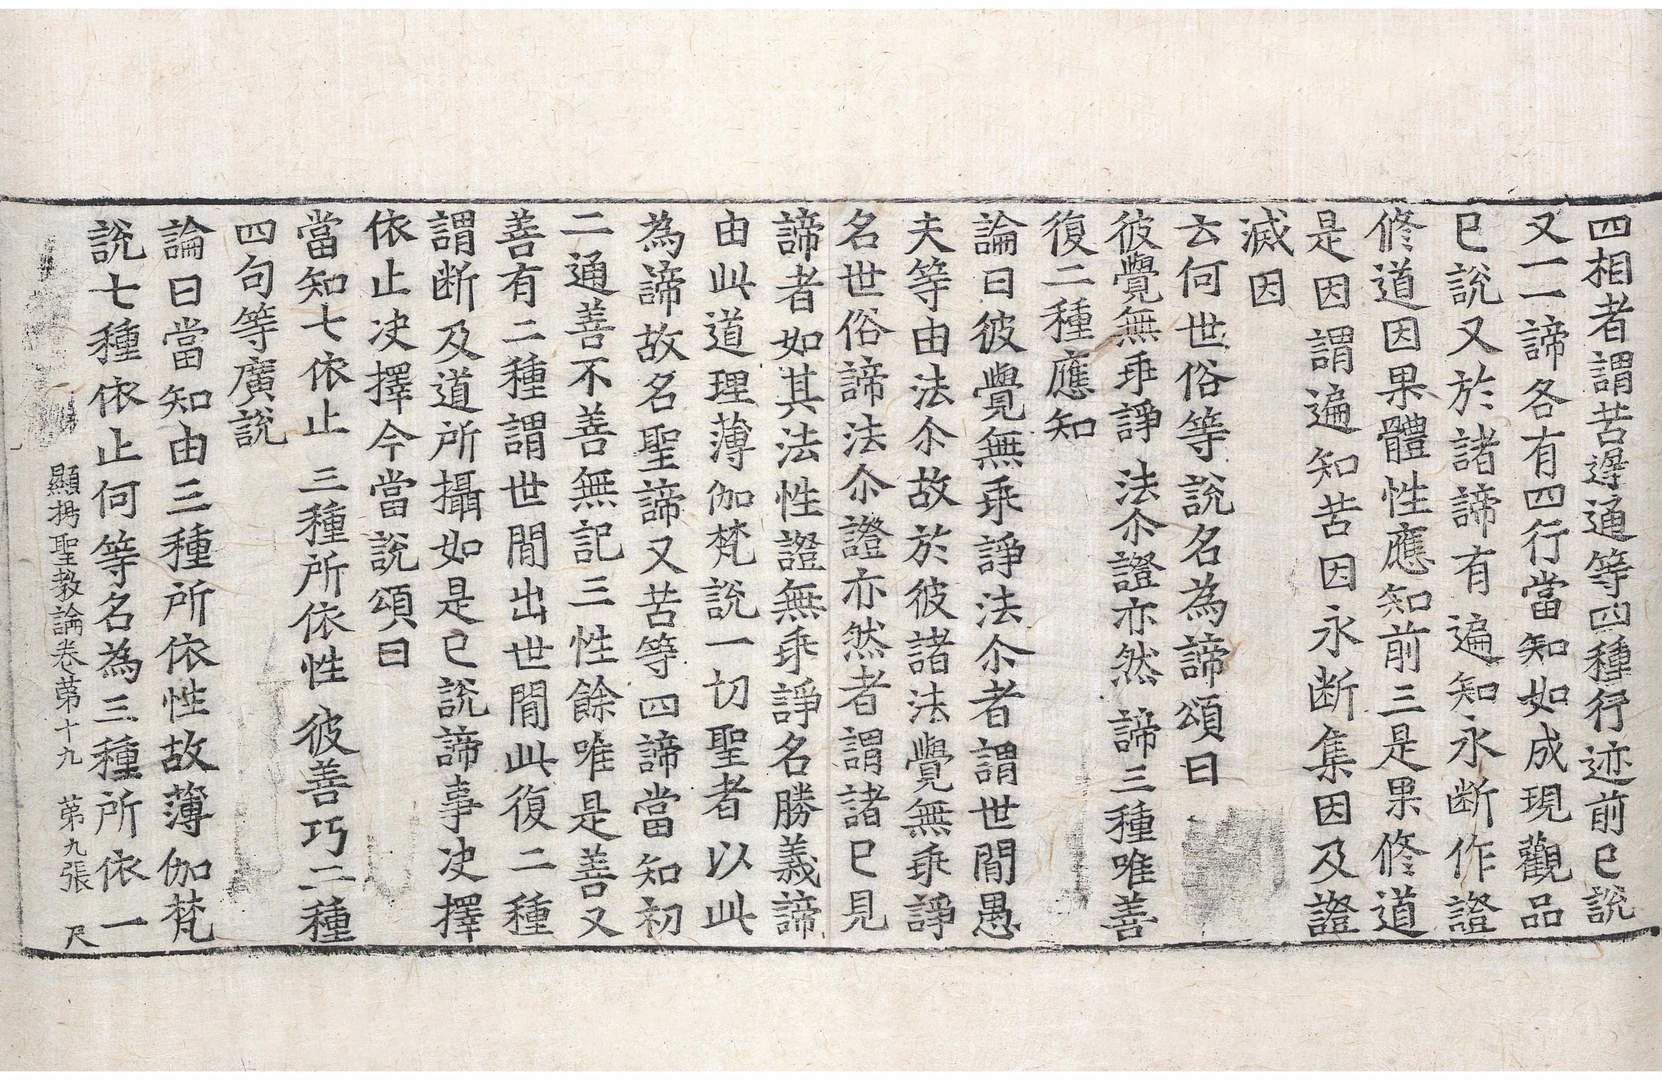 四相者謂苦遅通等四種行迹前已說
又一一諦各有四行當知如成現觀品
已說又於諸諦有遍知永断作證
修道因果體性應知前三是果修道
是因謂遍知苦因永断集因及證
滅因
云何世俗等說名為諦頌曰
彼覺無乖諍 法尒證亦然 諦三種唯善
復二種應知
論曰彼覺無乖諍法尒者謂世間愚
夫等由法尒故於彼諸法覺無乖諍
名世俗諦法尒證亦然者謂諸已見
諦者如其法性證無乖諍名勝義諦
由此道理薄伽梵說一切聖者以此
為諦故名聖諦又苦等四諦當知初
二通善不善無記三性餘唯是善又
善有二種謂世間出世間此復二種
謂断及道所攝如是已說諦事决擇
依止决擇今當說頌曰
當知七依止 三種所依性 彼善巧二種
四句等廣說
論曰當知由三種所依性故薄伽梵
說七種依止何等名為三種所依一
顯揚聖教論卷第十九 第九張 尺